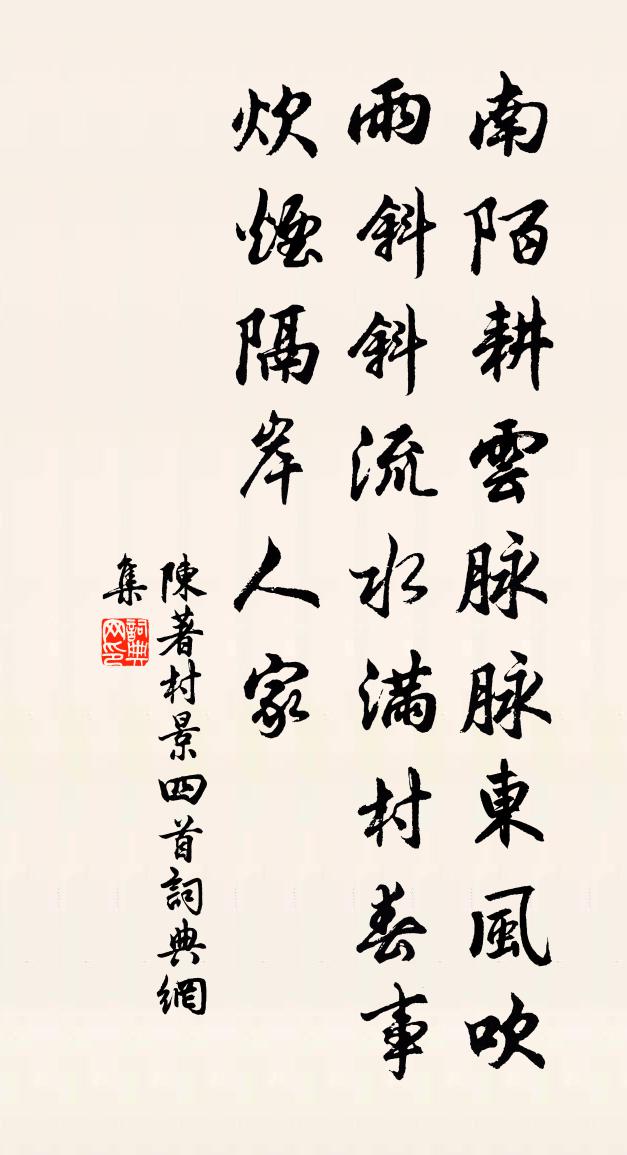 南陌耕雲脉脉東風吹
雨斜斜流水滿村春事
炊煙隔岸人家
陳著村景四首詞典網
集
詞典網印